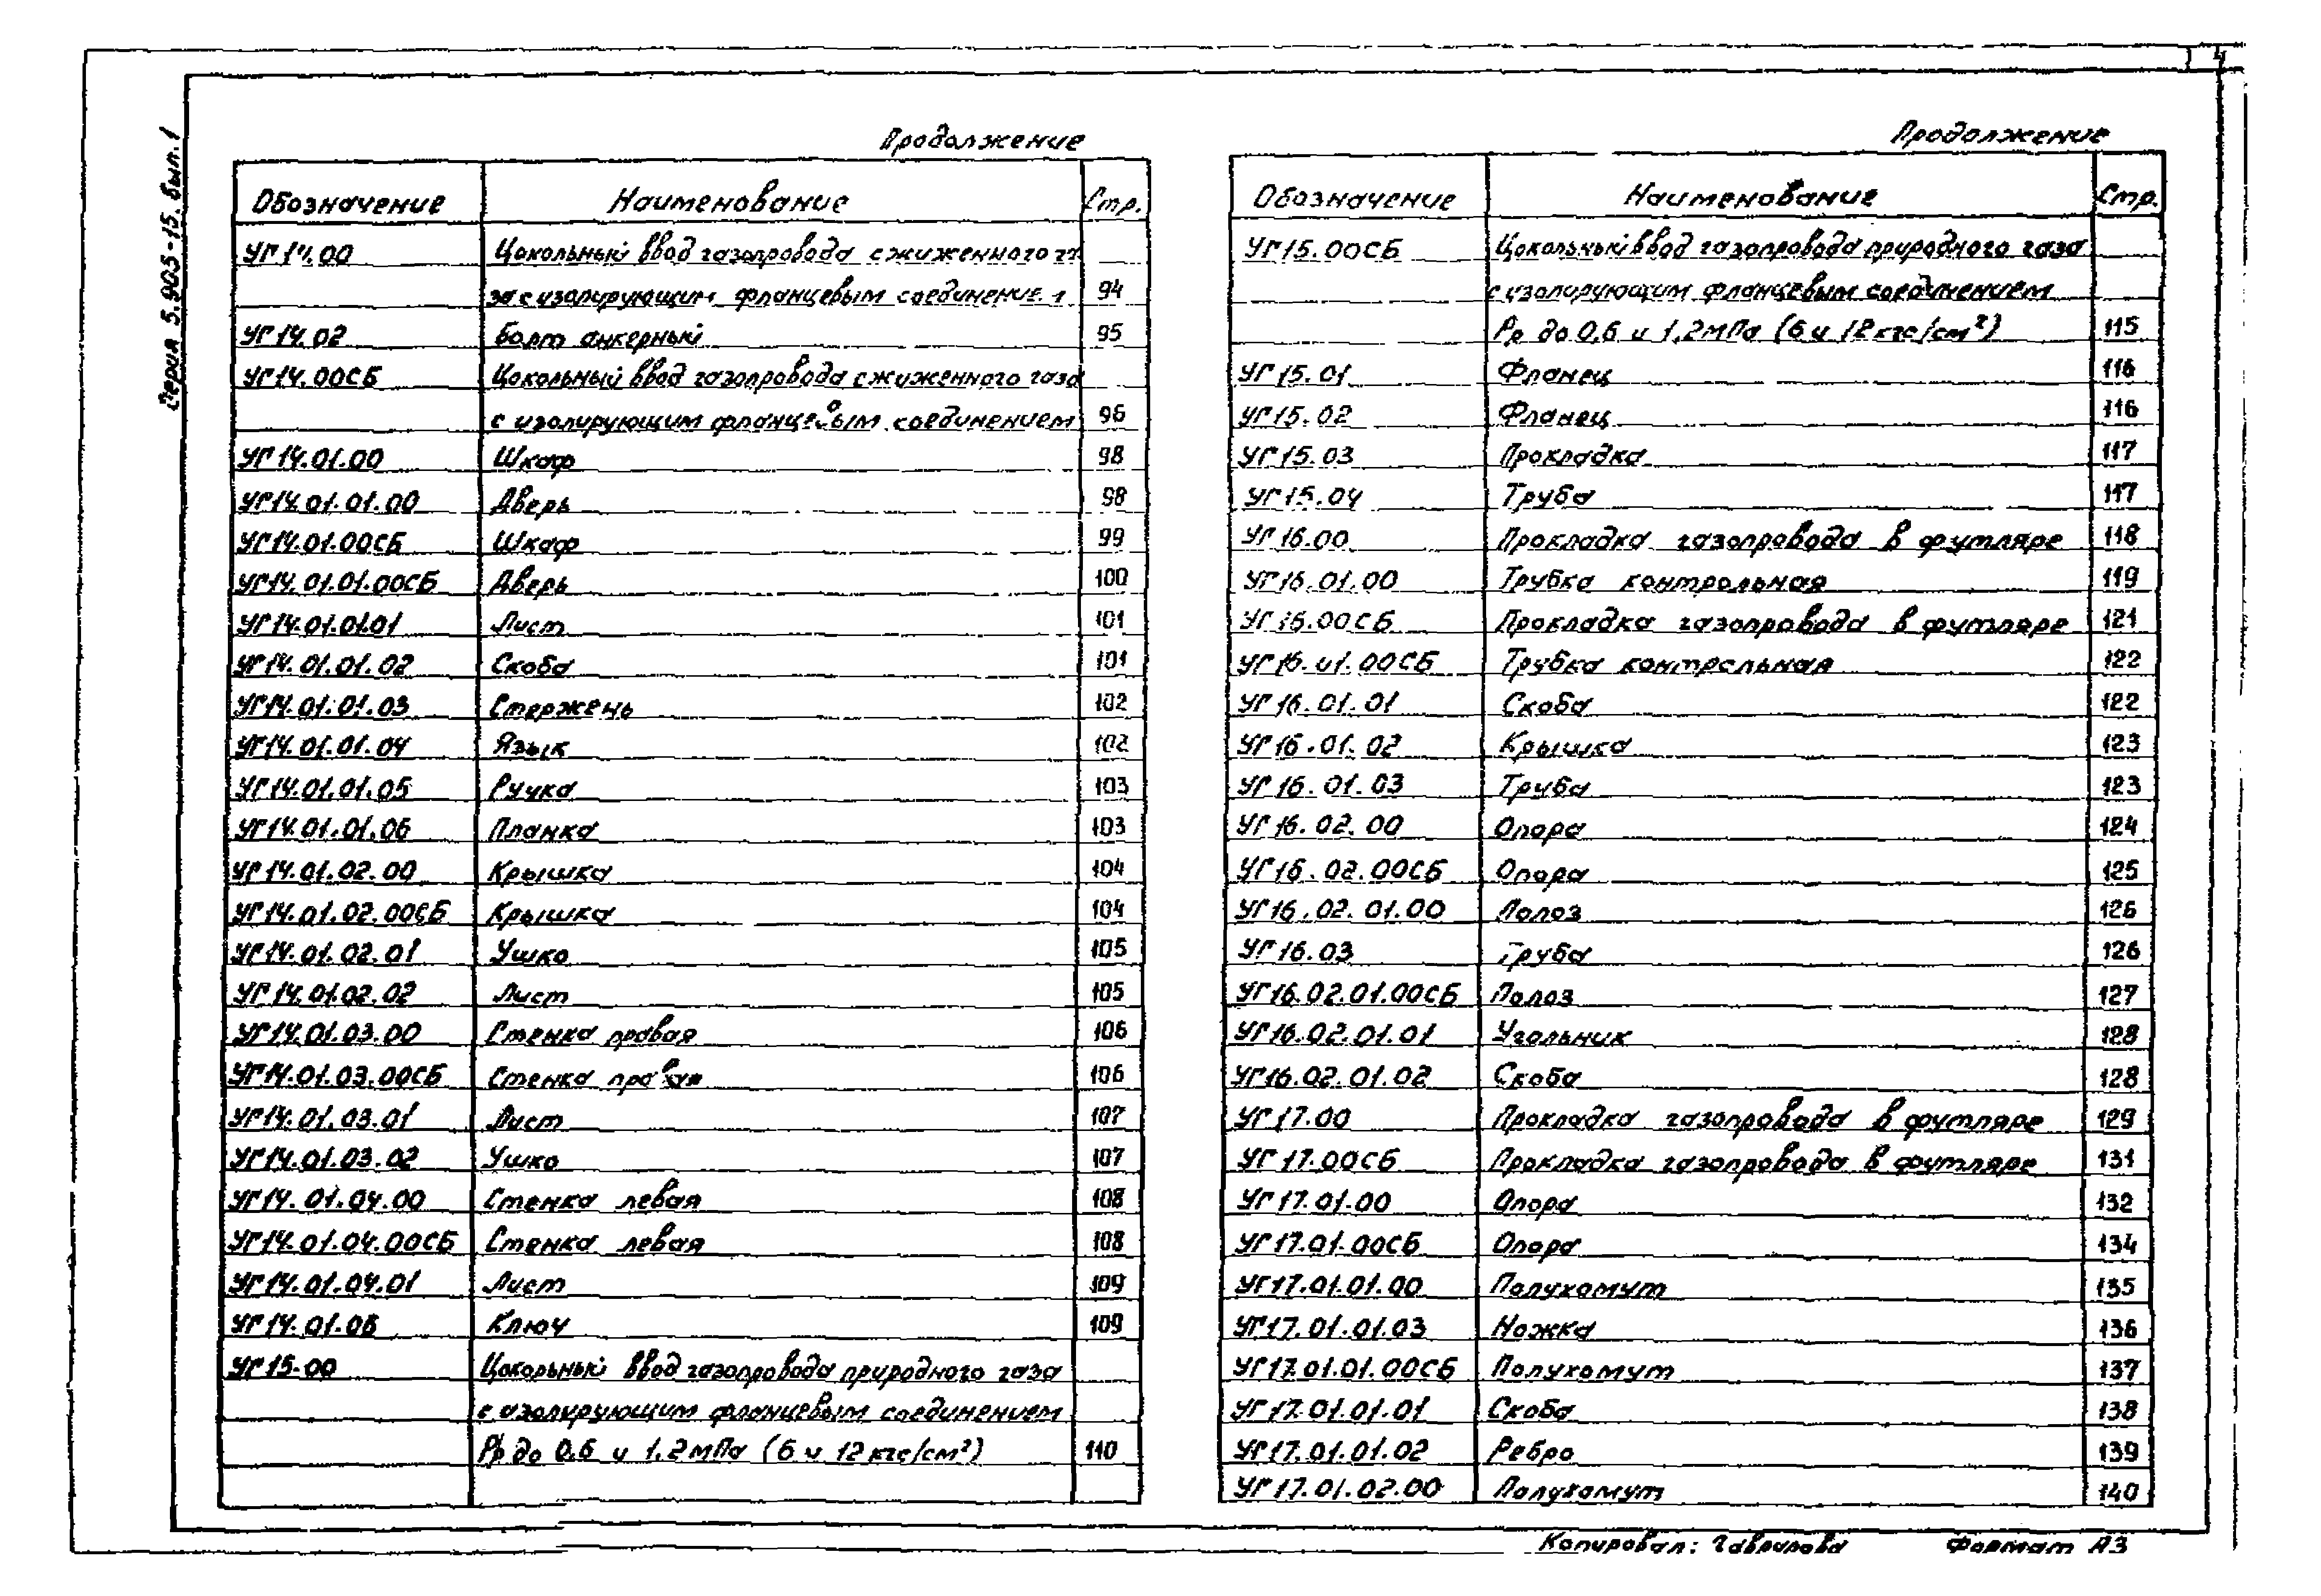 4
Серия 5.905-15. Вып.1
Продолжение
Обозначение Наименование Стр.
УГ14.00 Цокольный ввод газопровода сжиженного га
за с изолирующим фланцевым соединение 94
УГ14.02 Болт анкерный 95
УГ14.00СБ Цокольный ввод газопровода сжиженного газа
с изолирующим фланцевым соединением 96
УГ14.01.00 Шкаф 98
УГ14.01.01.00 Дверь 98
УГ14.01.00СБ Шкаф 99
УГ14.01.01.00СБ Дверь 100
УГ14.01.01.01 Лист 101
УГ14.01.01.02 Скоба 101
УГ14.01.01.03 Стержень 102
УГ14.01.01.04 Язык 102
УГ14.01.01.05 Ручка 103
УГ14.01.01.06 Планка 103
УГ14.01.02.00 Крышка 104
УГ14.01.02.00СБ Крышка 104
УГ14.01.02.01 Ушко 105
УГ14.01.02.02 Лист 105
УГ14.01.03.00 Стенка правая 106
УГ14.01.03.00СБ Стенка правая 106
УГ14.01.03.01 Лист 107
УГ14.01.03.02 Ушко 107
УГ14.01.04.00 Стенка левая 108
УГ14.01.04.00СБ Стенка левая 108
УГ14.01.04.01 Лист 109
УГ14.01.06 Ключ 109
УГ15.00 Цокольный ввод газопровода природного газа
с изолирующим фланцевым соединением
Рр до 0,6 и 1,2 МПа (6 и 12 кгс/см²) 110
Продолжение
Обозначение Наименование Стр.
УГ15.00СБ Цокольный ввод газопровода природного газа
с изолирующим фланцевым соединением
Рр до 0,6 и 1,2 МПа (6 и 12 кгс/см²) 115
УГ15.01 Фланец 116
УГ15.02 Фланец 116
УГ15.03 Прокладка 117
УГ15.04 Труба 117
УГ16.00 Прокладка газопровода в футляре 118
УГ16.01.00 Трубка контрольная 119
УГ16.00СБ Прокладка газопровода в футляре 121
УГ16.01.00СБ Трубка контрольная 122
УГ16.01.01 Скоба 122
УГ16.01.02 Крышка 123
УГ16.01.03 Труба 123
УГ16.02.00 Опора 124
УГ16.02.00СБ Опора 125
УГ16.02.01.00 Полоз 126
УГ16.03 Труба 126
УГ16.02.01.00СБ Полоз 127
УГ16.02.01.01 Угольник 128
УГ16.02.01.02 Скоба 128
УГ17.00 Прокладка газопровода в футляре 129
УГ17.00СБ Прокладка газопровода в футляре 131
УГ17.01.00 Опора 132
УГ17.01.00СБ Опора 134
УГ17.01.01.00 Полухомут 135
УГ17.01.01.03 Ножка 136
УГ17.01.01.00СБ Полухомут 137
УГ17.01.01.01 Скоба 138
УГ17.01.01.02 Ребро 139
УГ17.01.02.00 Полухомут 140
Копировал: Гаврилова Формат А3